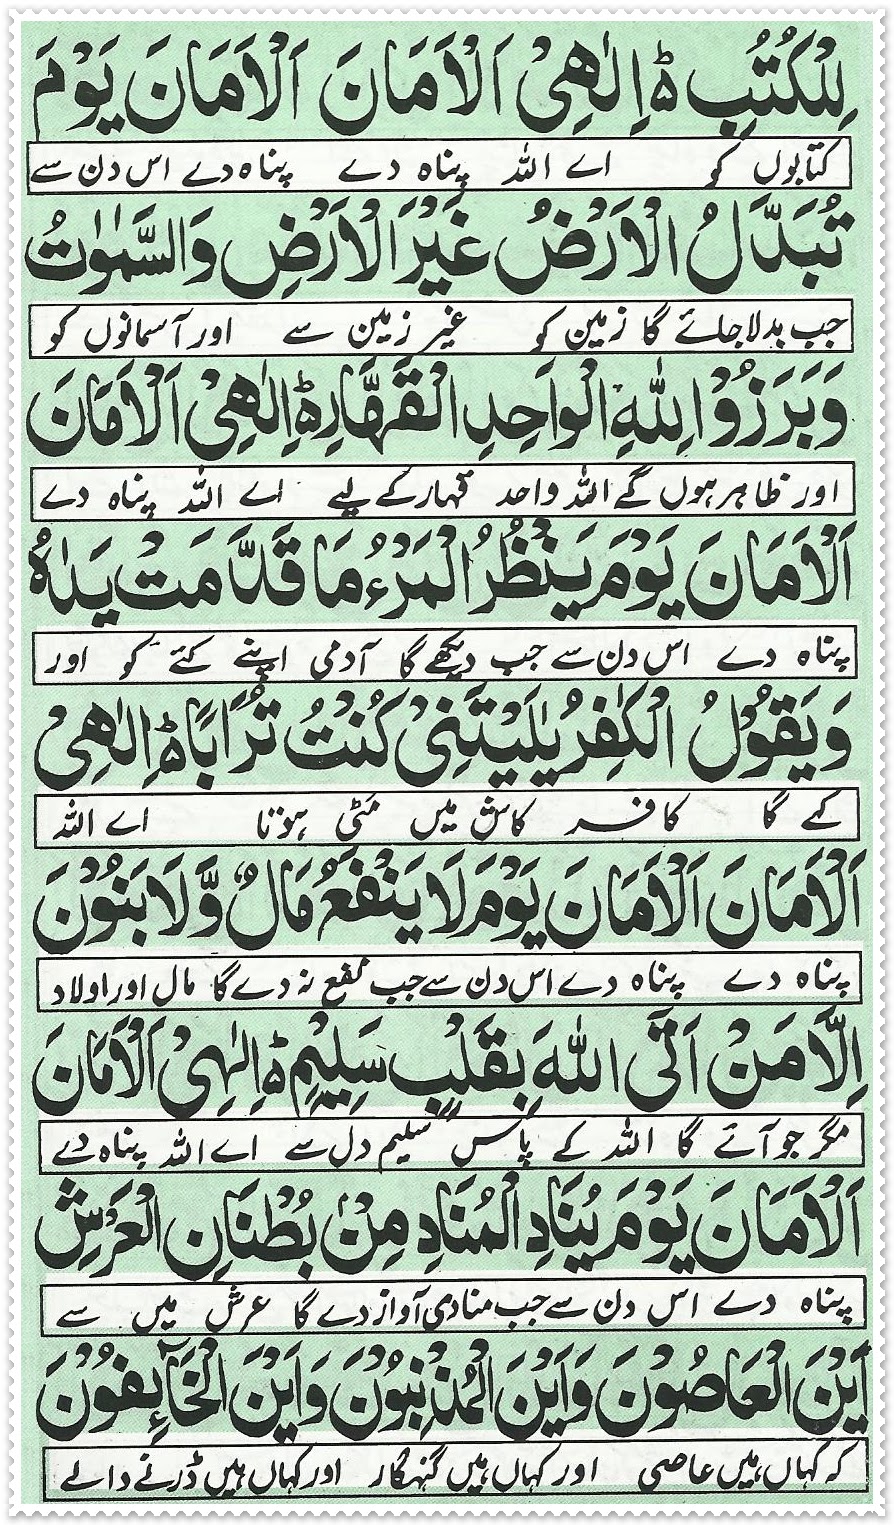 لِلْكُتُبِ ۵ اِلٰهِیْ اَلْاَمَانَ اَلْاَمَانَ یَوْمَ
کتابوں کو اے اللہ پناہ دے پناہ دے اس دن سے
تُبَدَّلُ الْاَرْضُ غَیْرَ الْاَرْضِ وَالسَّمٰوٰتُ
جب بدلا جائے گا زمین کو غیر زمین سے اور آسمانوں کو
وَبَرَزُوْا لِلّٰهِ الْوَاحِدِ الْقَهَّارِ ۵ اِلٰهِیْ اَلْاَمَانَ
اور ظاہر ہوں گے اللہ واحد قہار کے لیے اے اللہ پناہ دے
اَلْاَمَانَ یَوْمَ یَنْظُرُ الْمَرْءُ مَا قَدَّمَتْ یَدَاهُ
پناہ دے اس دن سے جب دیکھے گا آدمی اپنے کئے کو اور
وَیَقُوْلُ الْکٰفِرُ یٰلَیْتَنِیْ کُنْتُ تُرَابًا ۵ اِلٰهِیْ
کہے گا کافر کاش میں مٹی ہوتا اے اللہ
اَلْاَمَانَ اَلْاَمَانَ یَوْمَ لَا یَنْفَعُ مَالٌ وَّلَا بَنُوْنَ
پناہ دے پناہ دے اس دن سے جب نفع نہ دے گا مال اور اولاد
اِلَّا مَنْ اَتَی اللّٰهَ بِقَلْبٍ سَلِیْمٍ ۵ اِلٰهِیْ اَلْاَمَانَ
مگر جو آئے گا اللہ کے پاس سلیم دل سے اے اللہ پناہ دے
اَلْاَمَانَ یَوْمَ یُنَادِ الْمُنَادِ مِنْ بُطْنَانِ الْعَرْشِ
پناہ دے اس دن سے جب منادی آواز دے گا عرش میں سے
اَیْنَ الْعَاصُوْنَ وَاَیْنَ الْمُذْنِبُوْنَ وَاَیْنَ الْخَآئِفُوْنَ
کہ کہاں ہیں عاصی اور کہاں ہیں گنہگار اور کہاں ہیں ڈرنے والے